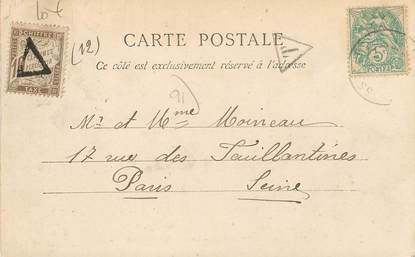 (12)
CARTE POSTALE
T
Ce côté est exclusivement réservé à l'adresse
CHIFFRE
TAXE
5
91
Mr et Mme Moineau
17 rue des Feuillantines
Paris Seine